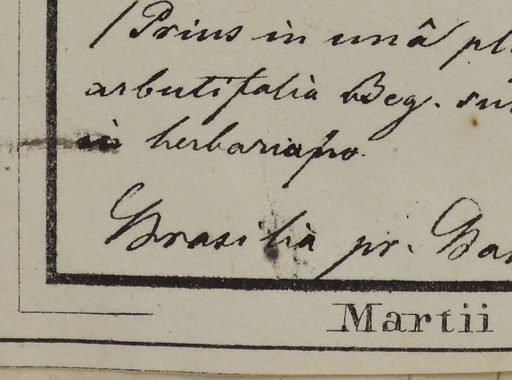 Prius in unâ pl
arbutifolià Beg. su
in herbariapo.
Brasilià pr. Ba
Martii